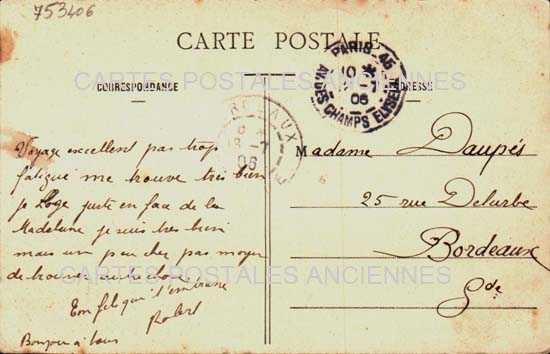 753406
CARTE POSTALE
CORRESPONDANCE
ADRESSE
PARIS_45
AV. DES CHAMPS ELYSEES
10
7
06
BORDEAUX
8 - 7
06
CARTES POSTALES ANCIENNES
Voyage excellent pas trop
fatigué me trouve très bien
je loge juste en face de la
Madeleine je suis très bien
mais un peu cher pas moyen
de trouver autre chose
Ton fils qui t'embrasse
Robert
Bonjour à tous
Madame Daupés
25 rue Delurbe
Bordeaux
Gde
CARTES POSTALES ANCIENNES